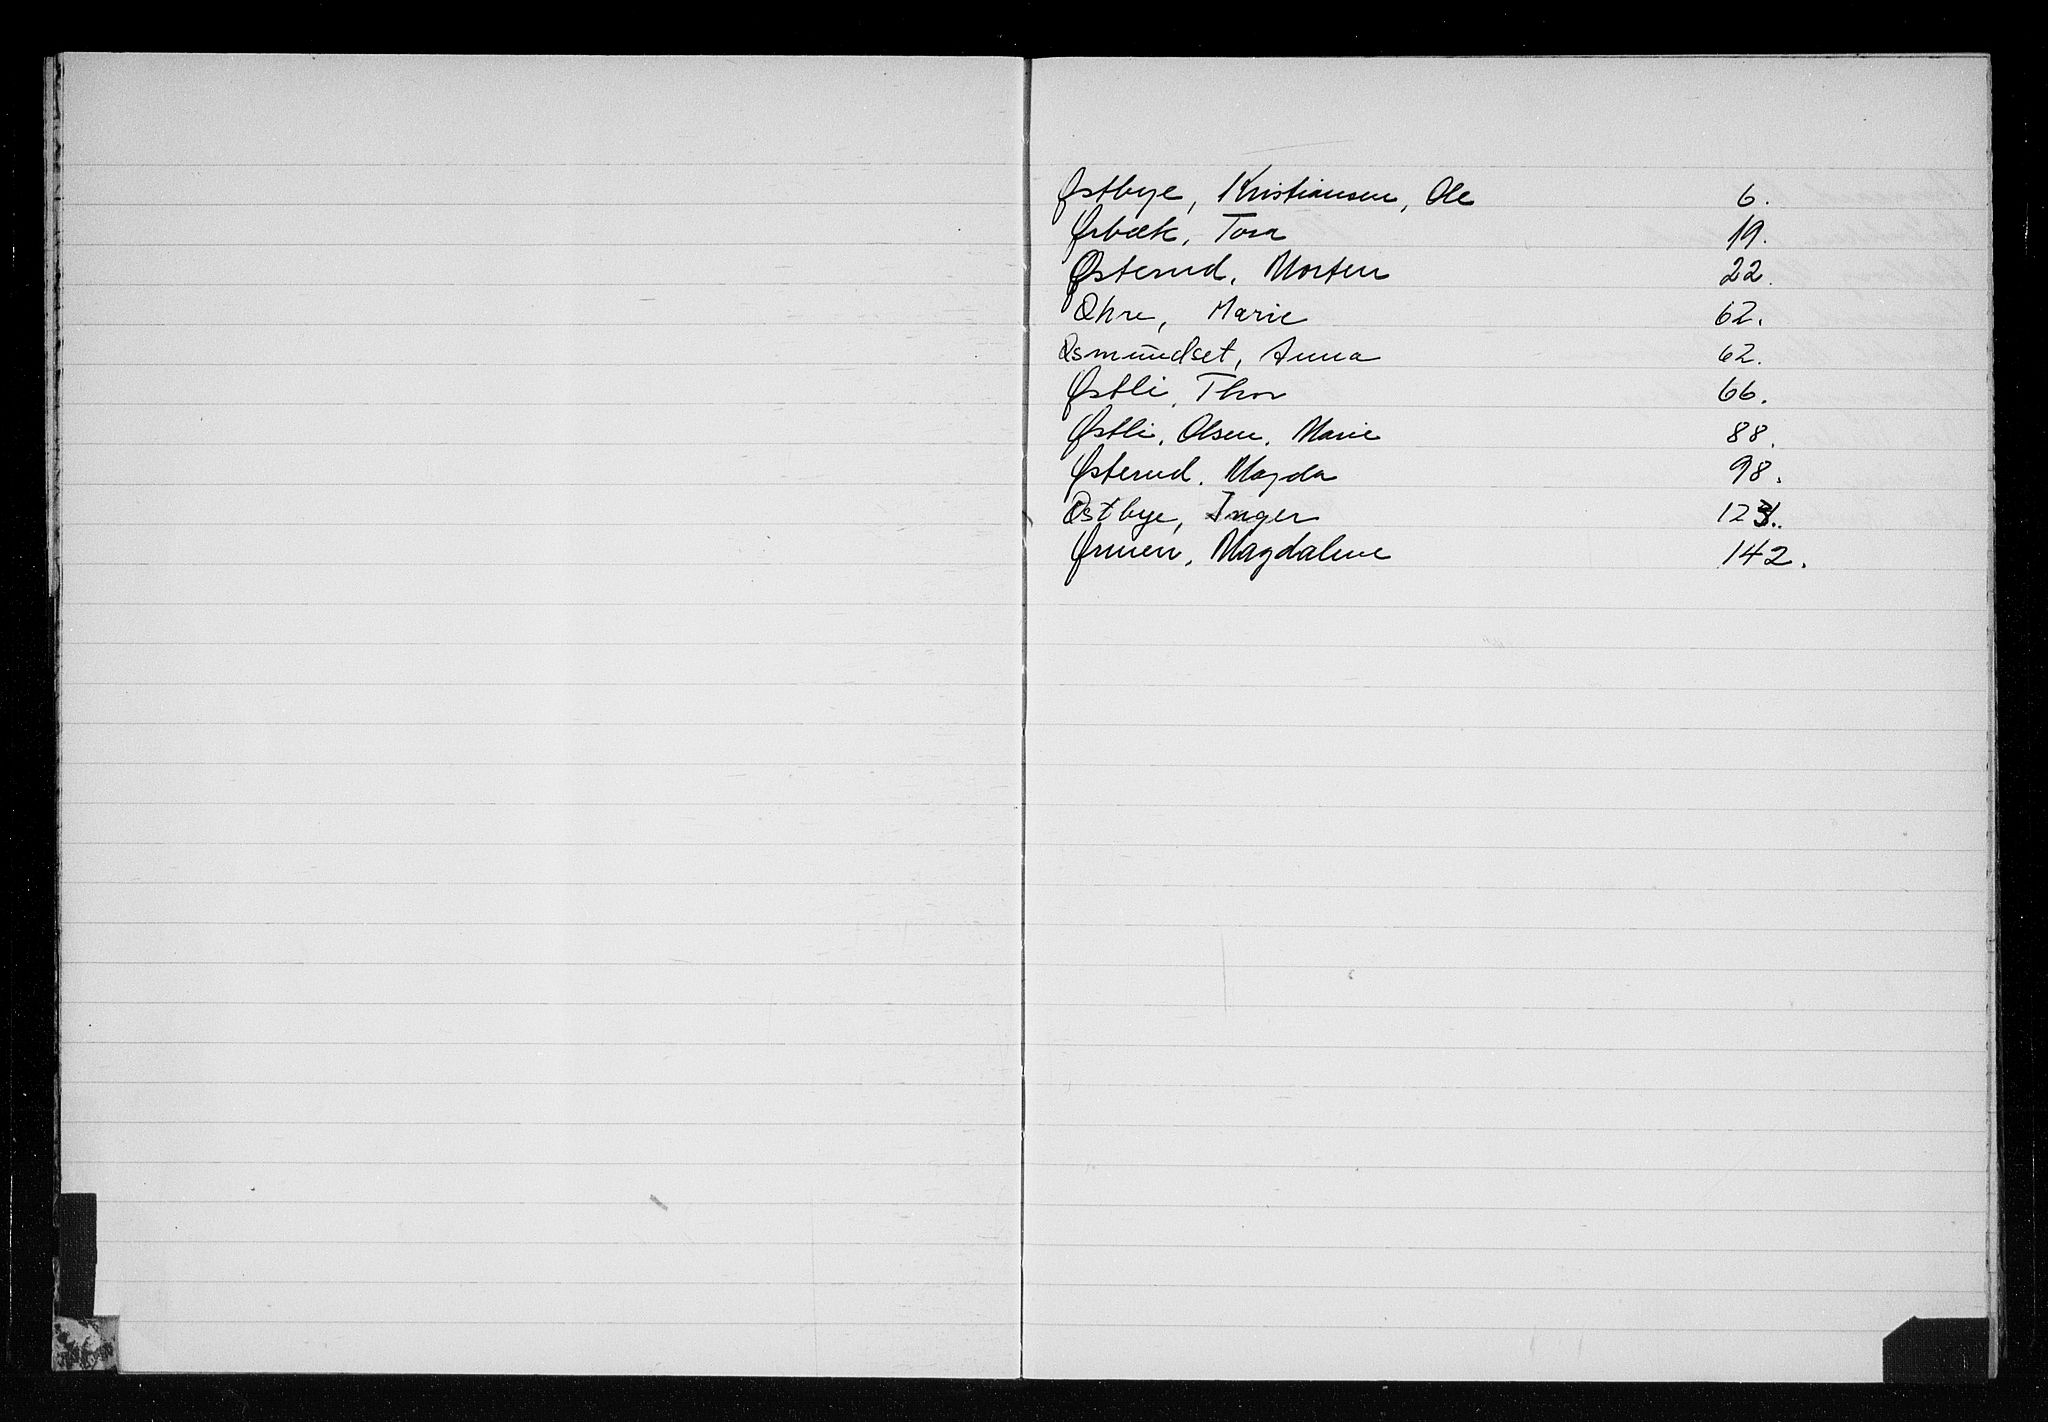 Østbye, Kristiansen, Ole 6.
Ørbæk, Tora 19.
Østerud, Morten 22.
Øhre, Marie 62.
Øsmundset, Anna 62.
Østli, Thor 66.
Østli, Olsen, Marie 88.
Østerud, Magda 98.
Østbye, Inger 123.
Ørnen, Magdalene 142.